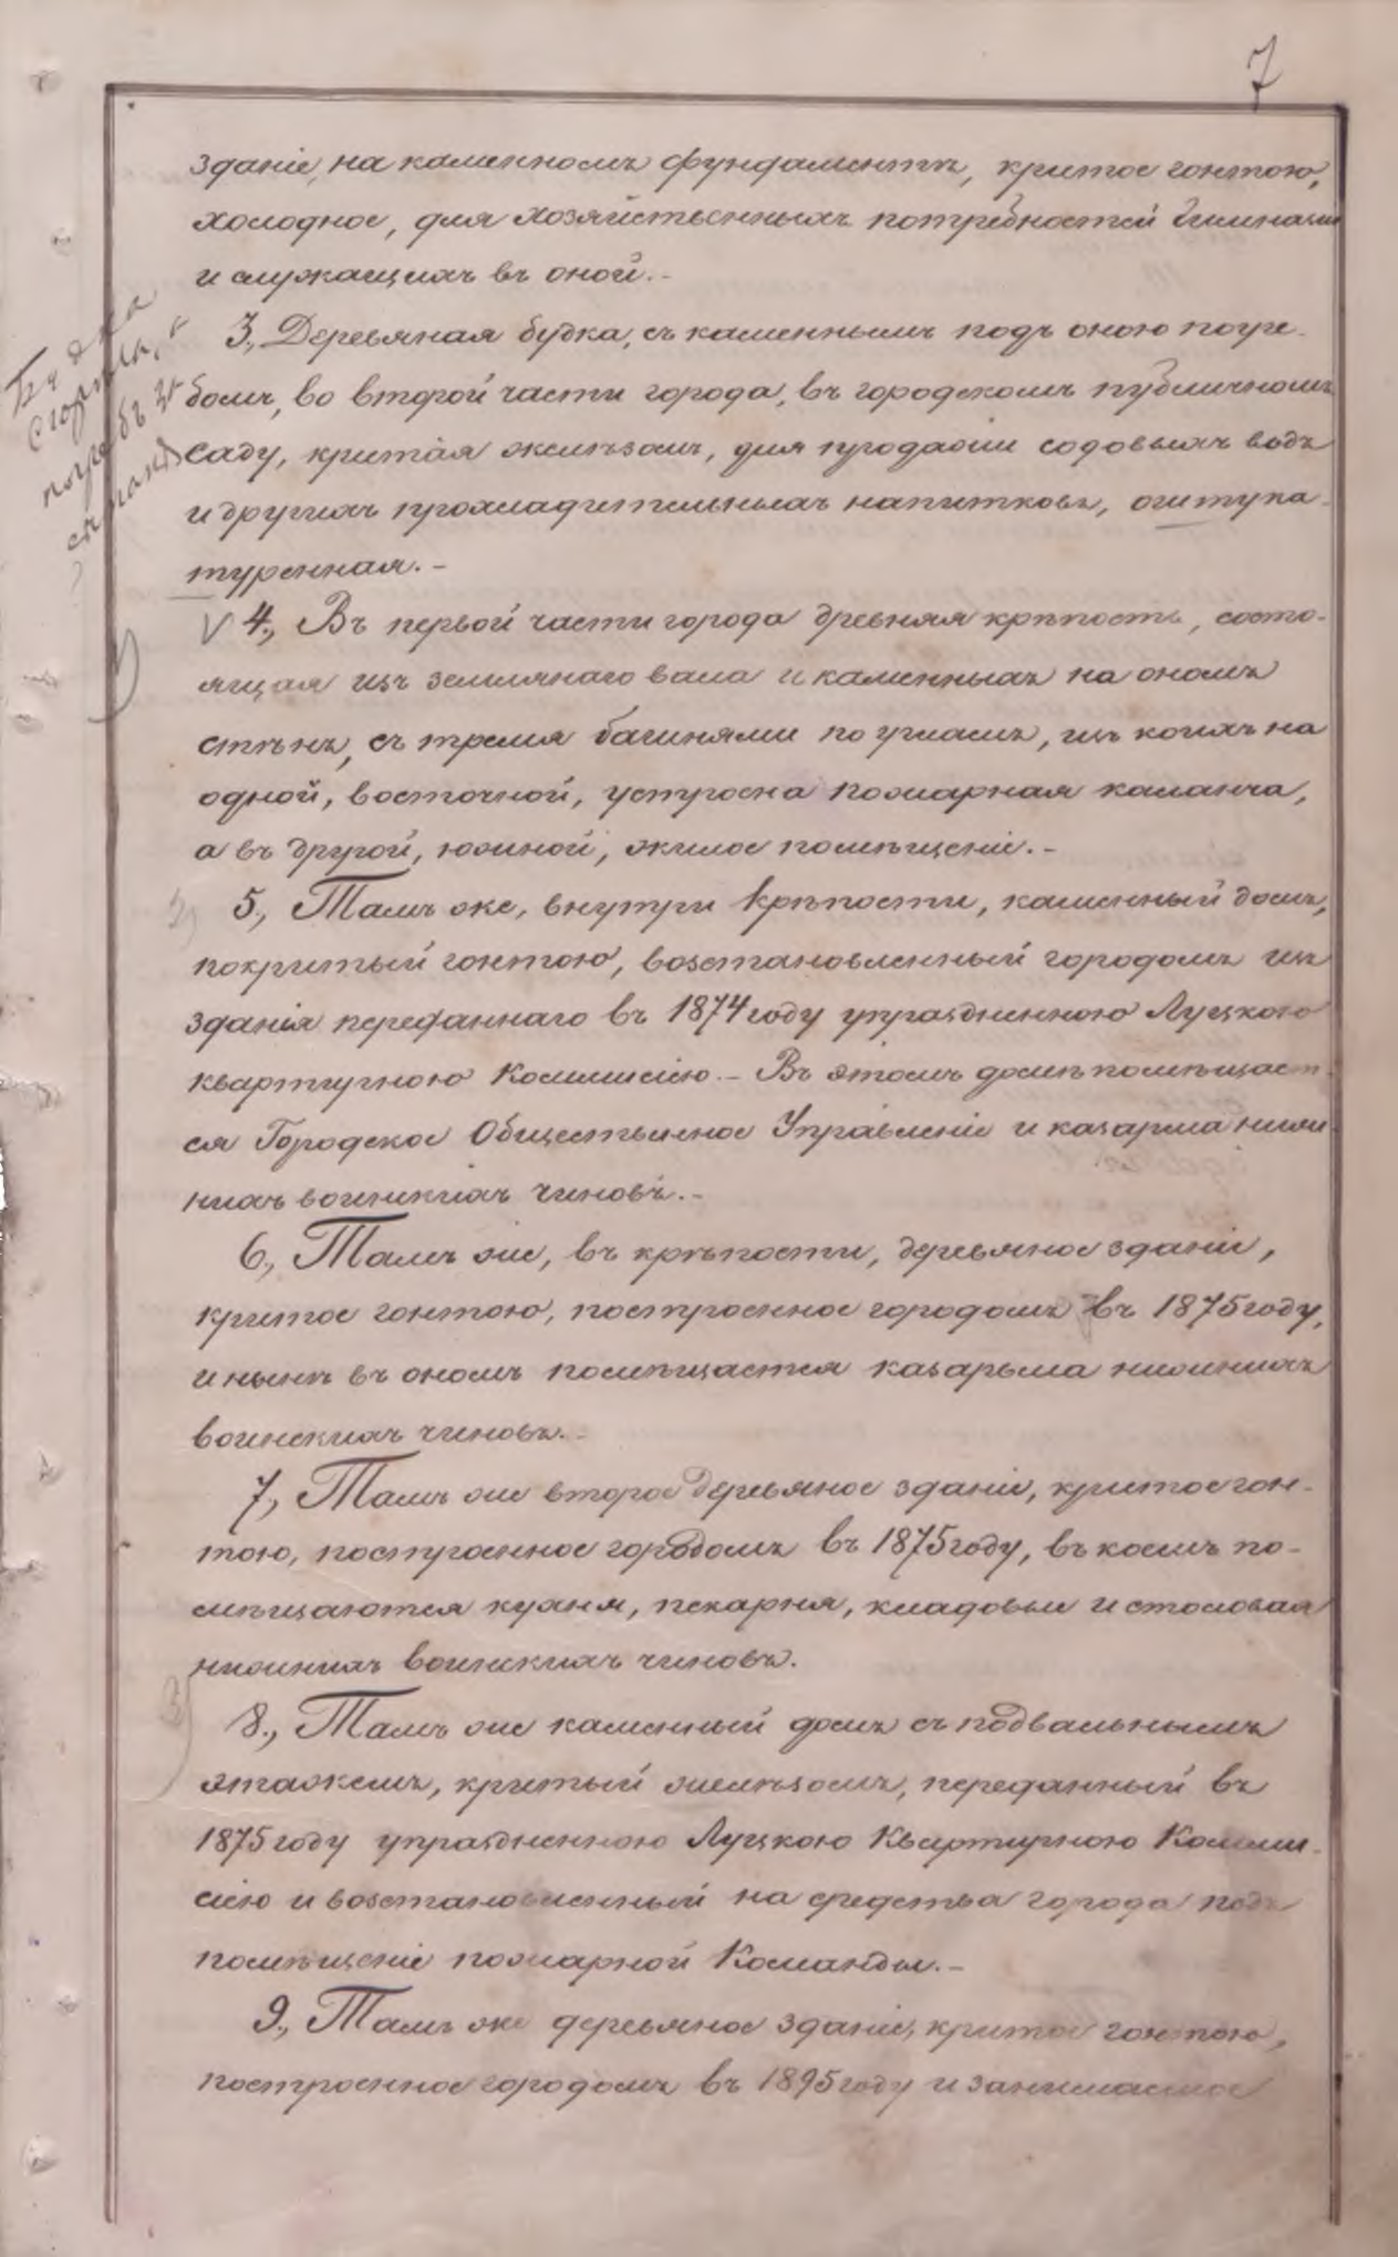 7
зданіе, на каменномъ фундаментѣ, критое гонтою,
холодное, для хозяйственныхъ потребностей Гимназіи
и служащихъ въ оной.-
3., Деревяная будка, съ каменнымъ подъ оною погре-
бомъ, во второй части города, въ городскомъ публичномъ
саду, критая желѣзомъ, для продажи содовыхъ водъ
и другихъ прохладительныхъ напитковъ, оштука-
туренная.-
V 4., Въ первой части города древняя крѣпость, состо-
ящая изъ землянаго вала и каменныхъ на ономъ
стѣнъ, съ тремя башнями по угламъ, изъ коихъ на
одной, восточной, устроена пожарная каланча,
а въ другой, южной, жилое помѣщеніе.-
5., Тамъ же, внутри крѣпости, каменный домъ,
покритый гонтою, возстановленный городомъ изъ
зданія переданнаго въ 1874 году упраздненною Луцкою
квартирною Коммисіею.- Въ этомъ домѣ помѣщает-
ся Городское Общественное Управленіе и казарма ниж-
нихъ воинскихъ чиновъ.-
6., Тамъ же, въ крѣпости, деревяное зданіе,
критое гонтою, построенное городомъ въ 1875 году,
и нынѣ въ ономъ помѣщается казарьма нижнихъ
воинскихъ чиновъ.-
7., Тамъ же второе деревяное зданіе, критое гон-
тою, построенное городомъ въ 1875 году, въ коемъ по-
мѣщаются кухня, пекарня, кладовыя и столовая
нижнихъ воинскихъ чиновъ.
3)
8., Тамъ же каменный домъ съ подвальнымъ
этажемъ, критый желѣзомъ, переданный въ
1875 году упраздненною Луцкою Квартирною Комми-
сіею и возстановленный на средства города подъ
помѣщеніе пожарной Команды.-
9., Тамъ же деревяное зданіе, критое гонтою,
построенное городомъ въ 1895 году и занимаемое